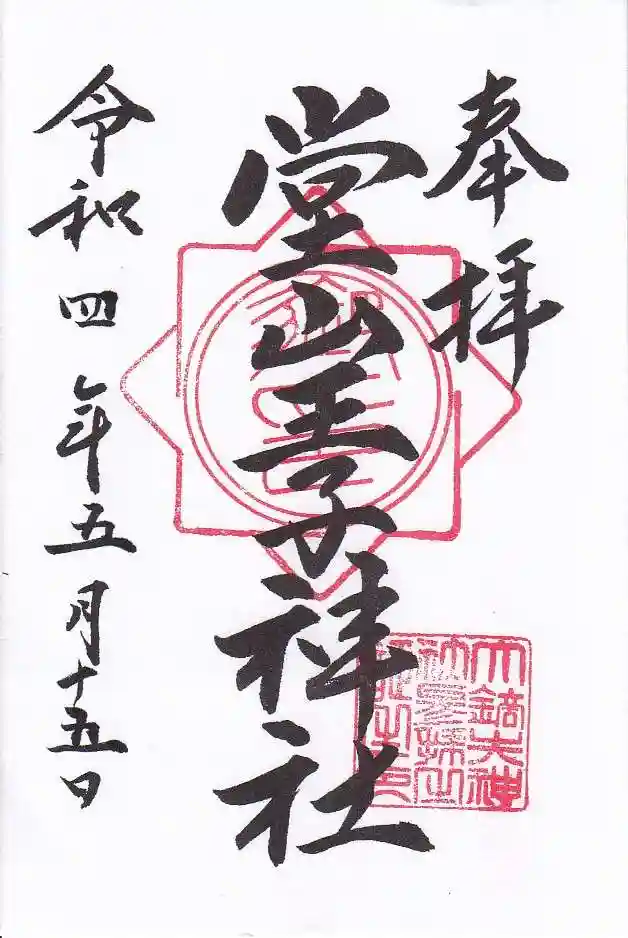 奉拝
堂山王子神社
令和四年五月十五日
大鏑大神